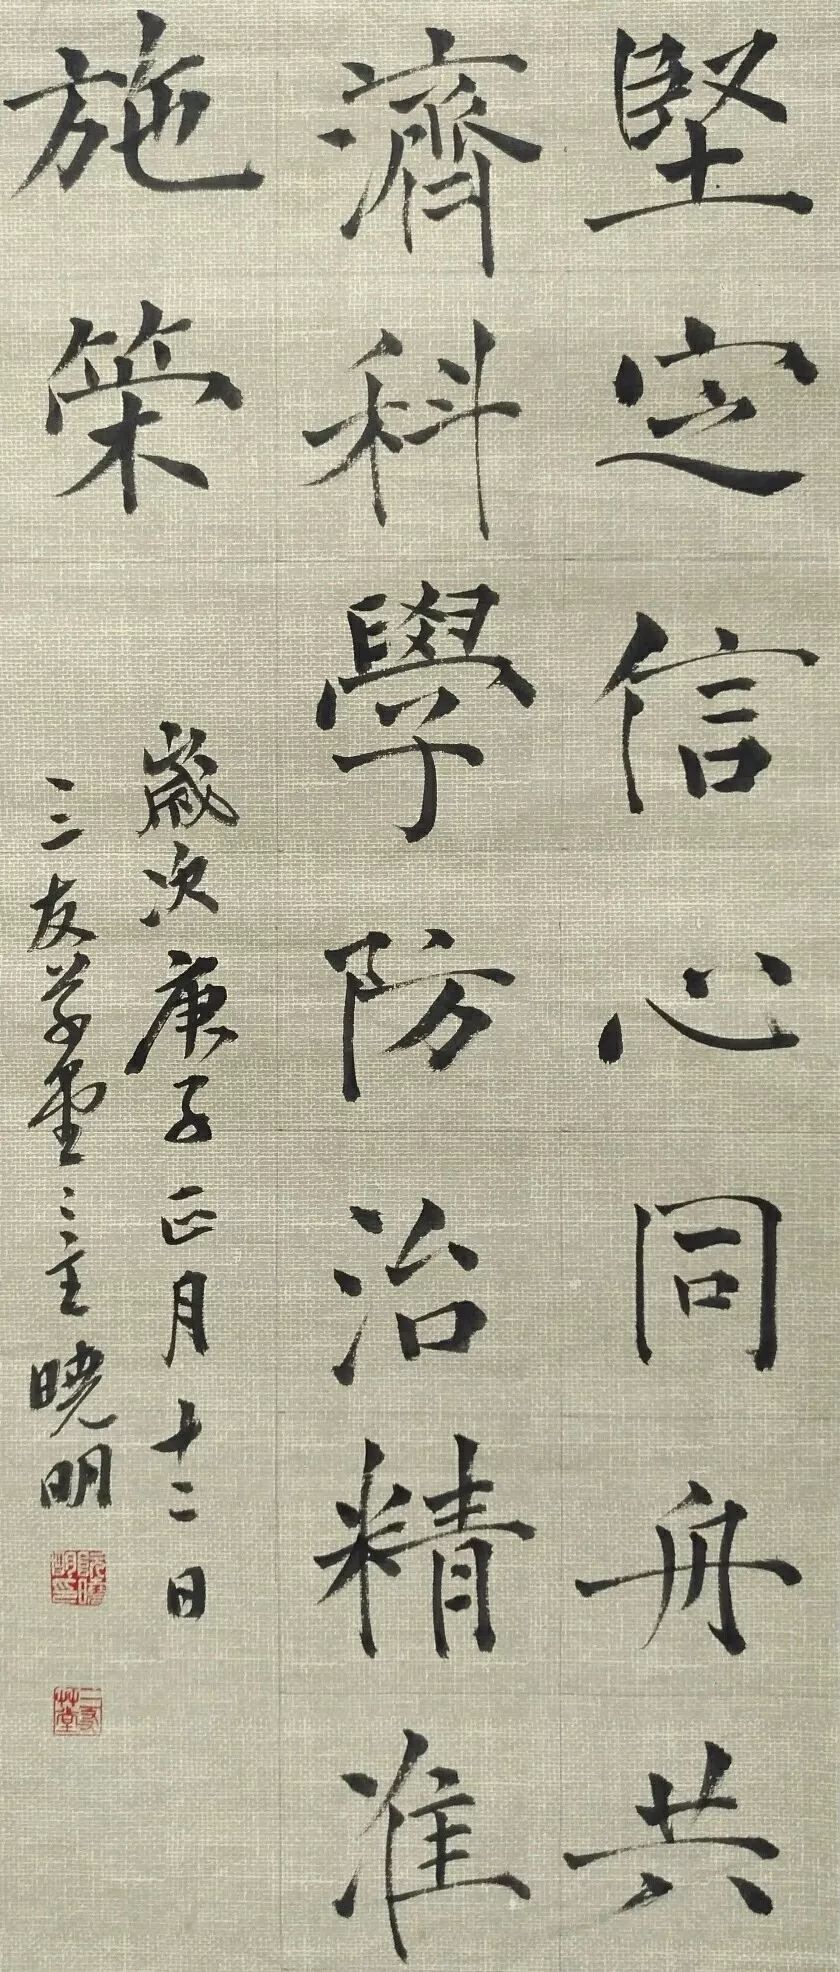 堅定信心同舟共
濟科學防治精准
施策
歲次庚子正月十二日
三友草堂主曉明